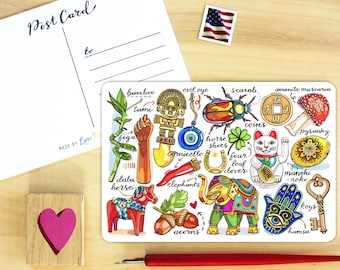 Post Card
to
MADE BY
bamboo
evil eye
scarab
amanita muscaria
tumi
coins
figa
horse
shoes
pysanky
cornicello
four
leaf
clover
maneki
-neko
dala
horse
elephants
keys
acorns
hamsa